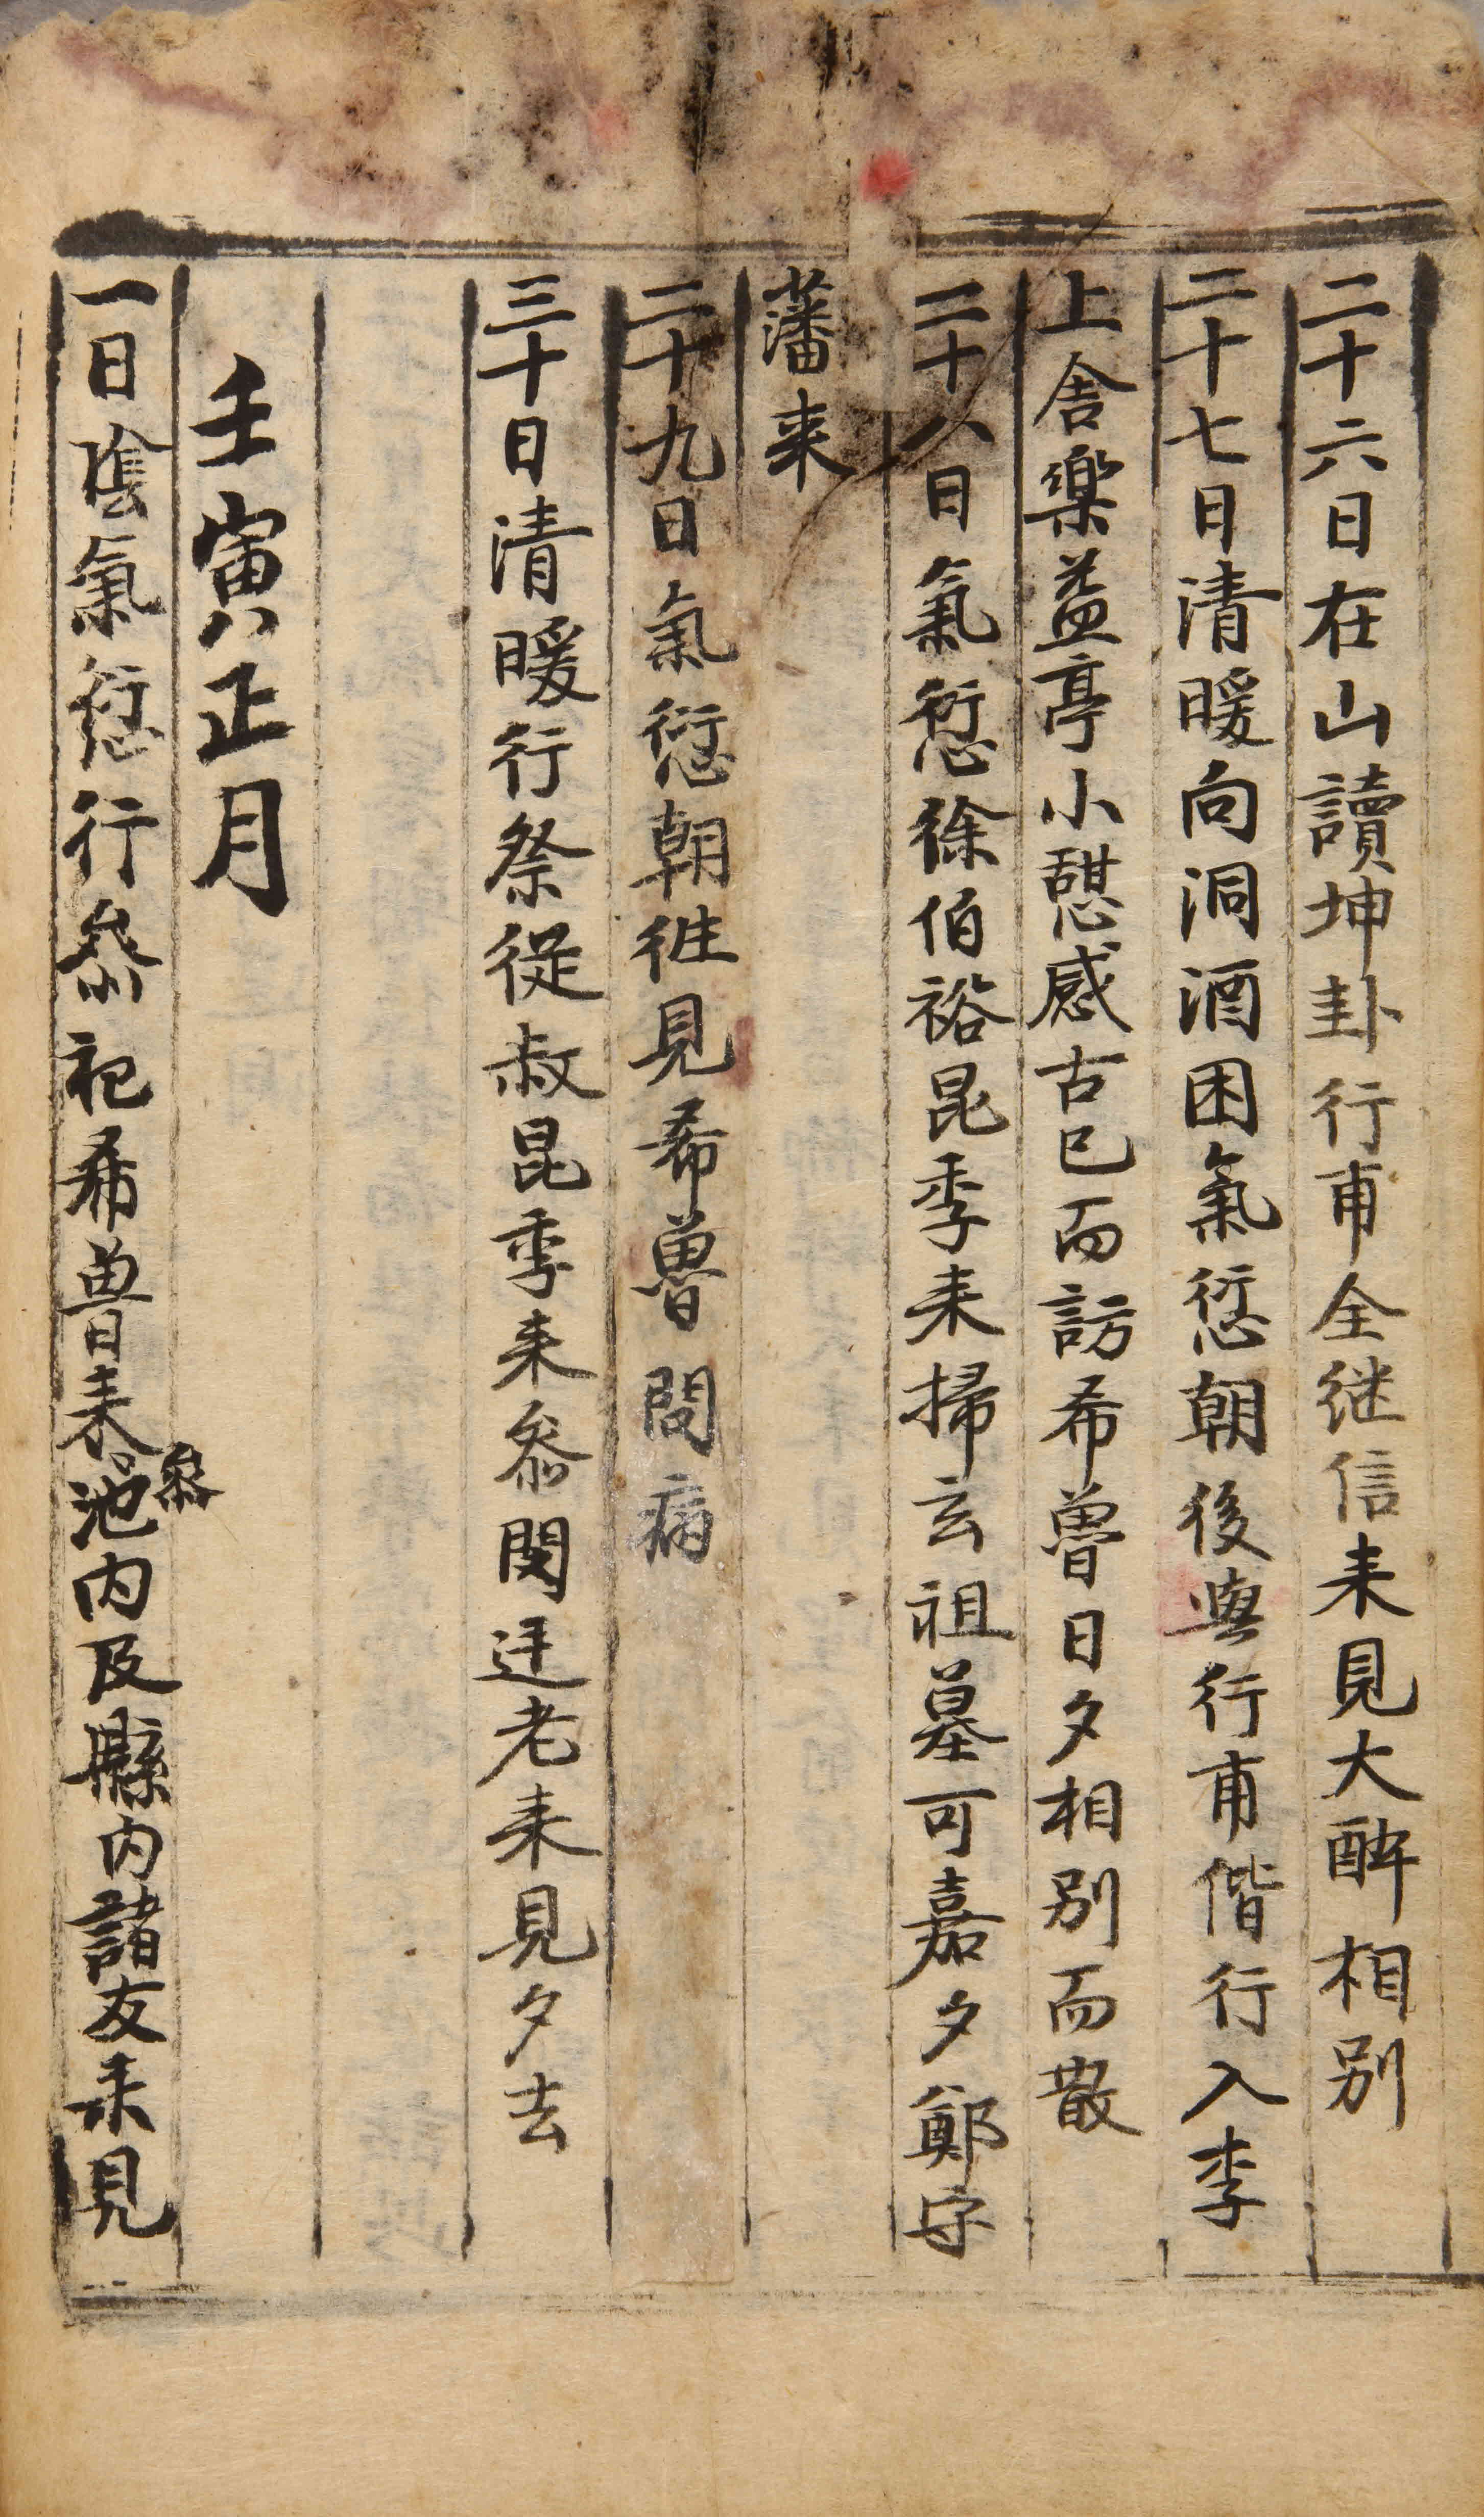 二十六日在山讀坤卦行甫全継信来見大醉相別
二十七日清暖向洞酒困氣愆朝後與行甫偕行入李
上舍樂益亭小憇感古已而訪希曽日夕相別而散
二十八日氣愆徐伯裕昆季来掃玄祖墓可嘉夕鄭守
藩来
二十九日氣愆朝徃見希魯問病
三十日清暖行祭従叔昆季来叅閔廷老来見夕去
壬寅正月
一日陰氣愆行叅祀希曽来叅池内及縣内諸友来見